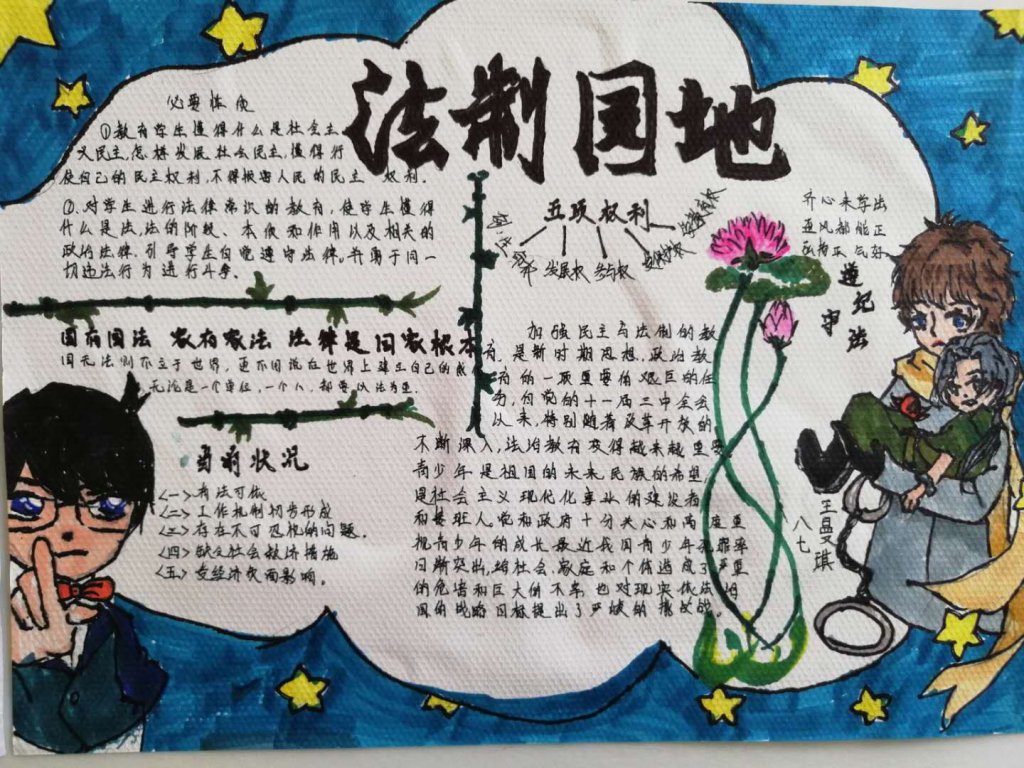 法制园地
必要性质
①教育学生懂得什么是社会主
义民主,怎样发展社会民主,懂得行
使自己的民主权利,不得损害人民的民主 权利.
②.对学生进行法律常识的教育,使学生懂得
什么是法法的阶段、本质和作用以及相关的
政治法律.引导学生自觉遵守法律.并勇于同一
切违法行为进行斗争.
国有国法 家有家法 法律是国家根本
国无法则不立于世界,更不用说在世界上建立自己的
无论是一个单位,一个人,都要以法为
当前状况
<一>有法可依
<二>工作机制初步形成
<三>存在不可忽视的问题.
<四>缺乏社会救济措施
<五>受经济负面影响.
五项权利
发展权 参与权
加强民主与法制的教
育.是新时期思想、政治教
育的一项重要的艰巨的任
务,自党的十一届三中全会
以来,特别随着改革开放的
不断深入,法治教育变得越来越重要
青少年是祖国的未来民族的希望
是社会主义现代化事业的建设者
和接班人,党和政府十分关心和高度重
视青少年的成长最近我国青少年犯罪率
日渐突出,给社会、家庭和个体造成了严重
的危害和巨大的不幸也对现实依法治
国的战略目标提出了严峻的挑战.
齐心来学法
遵纪
守法
八七
王昱琪